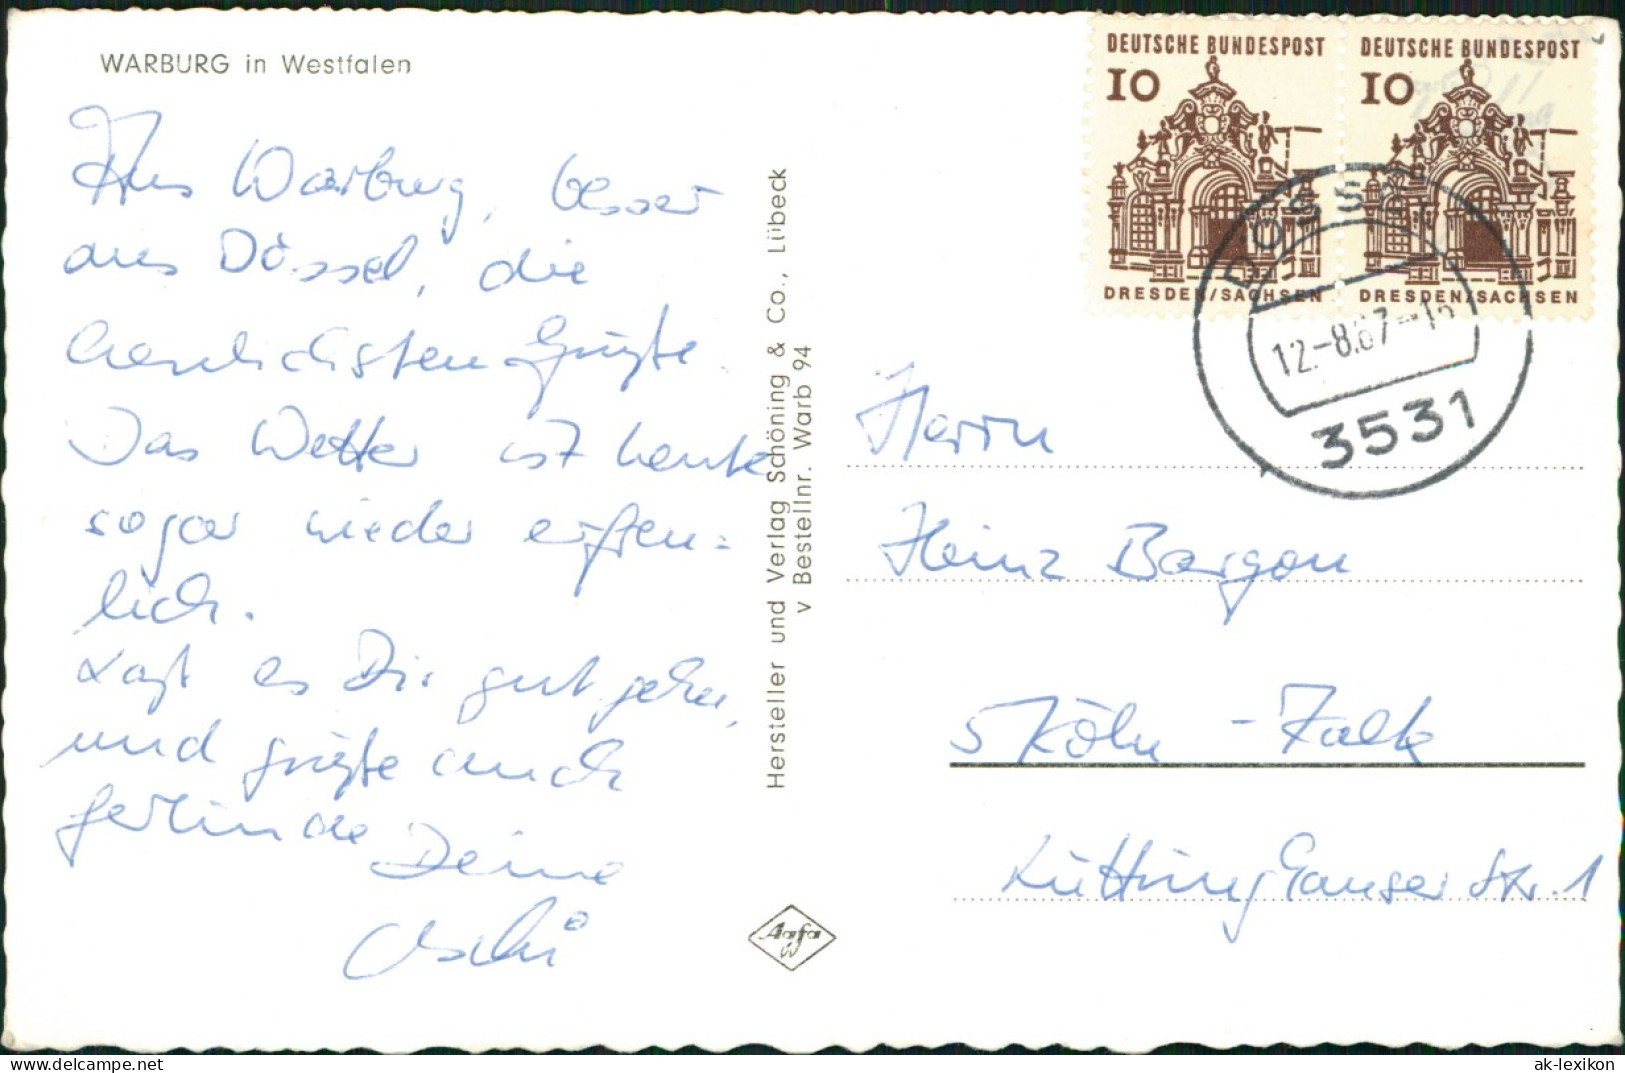 WARBURG in Westfalen
Aus Warburg, besser
aus Dössel, die
herzlichsten Grüße.
Das Wetter ist heute
sogar wieder erfreu=
lich.
Laß es Dir gut gehen,
und grüße auch
Gerlinde
Deine
Uschi
Hersteller und Verlag Schöning & Co., Lübeck
v Bestellnr. Warb 94
Agfa
DEUTSCHE BUNDESPOST
10
DRESDEN/SACHSEN
DEUTSCHE BUNDESPOST
10
DRESDEN/SACHSEN
DÖSSEL
12.-8.67-
3531
Herrn
Heinz Bargon
5 Köln - Kalk
Lüttringhauser Str. 1
delcampe.net
ak-lexikon